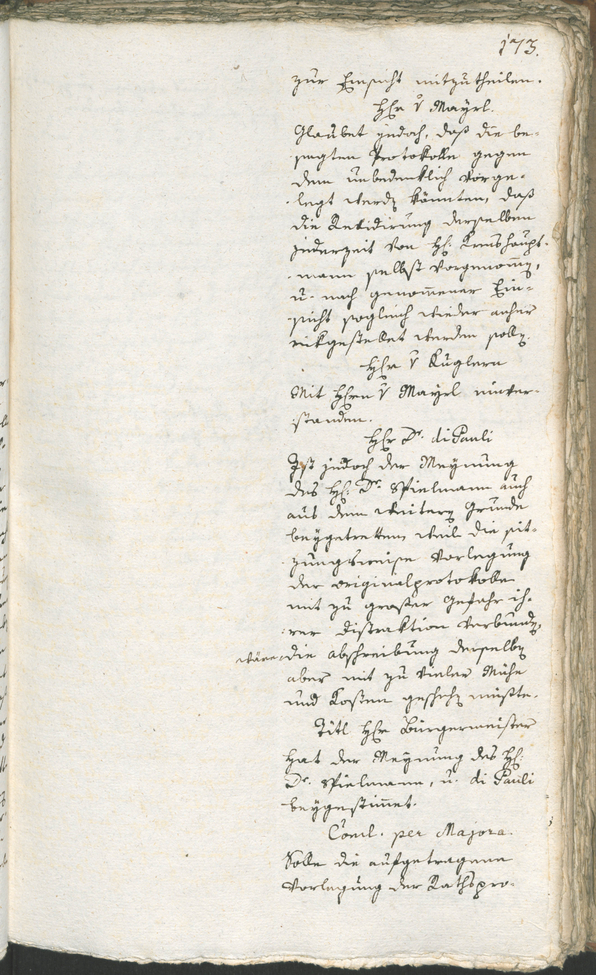 173.
zur Einsicht mitzutheilen.
Hr v Mayrl.
Glaubet jedoch, daß die be-
sagten Protokolle gegen
dem unbedenklich vorge-
legt werdn könnten, daß
die Revidirung derselben
jederzeit von H: Kreishaupt-
mann selbst vorgenomn,
u. nach genommener Ein-
sicht sogleich wieder anher
rükgestellet werden solln.
Hr v Kuglern
Mit Hrn v Mayrl einver-
standen.
Hr Dr. di Pauli
Ist jedoch der Meynung
des H: Dr. Spielmann auch
aus dem weitern Grunde
beygetretten, weil die sit-
zungsweise Vorlegung
der originalprotokolle
mit zu großer Gefahr ih-
rer Distraktion verbundn,
wäre die abschreibung derselbn
aber mit zu vieler Mühe
und Kosten geschehn müßte.
Titl Hr Bürgermeister
Hat der Meynung des H:
Dr. Spielmann, u. di Pauli
beygestimmet.
Concl. per Majora.
Solle die aufgetragene
Vorlegung der Rathspro-